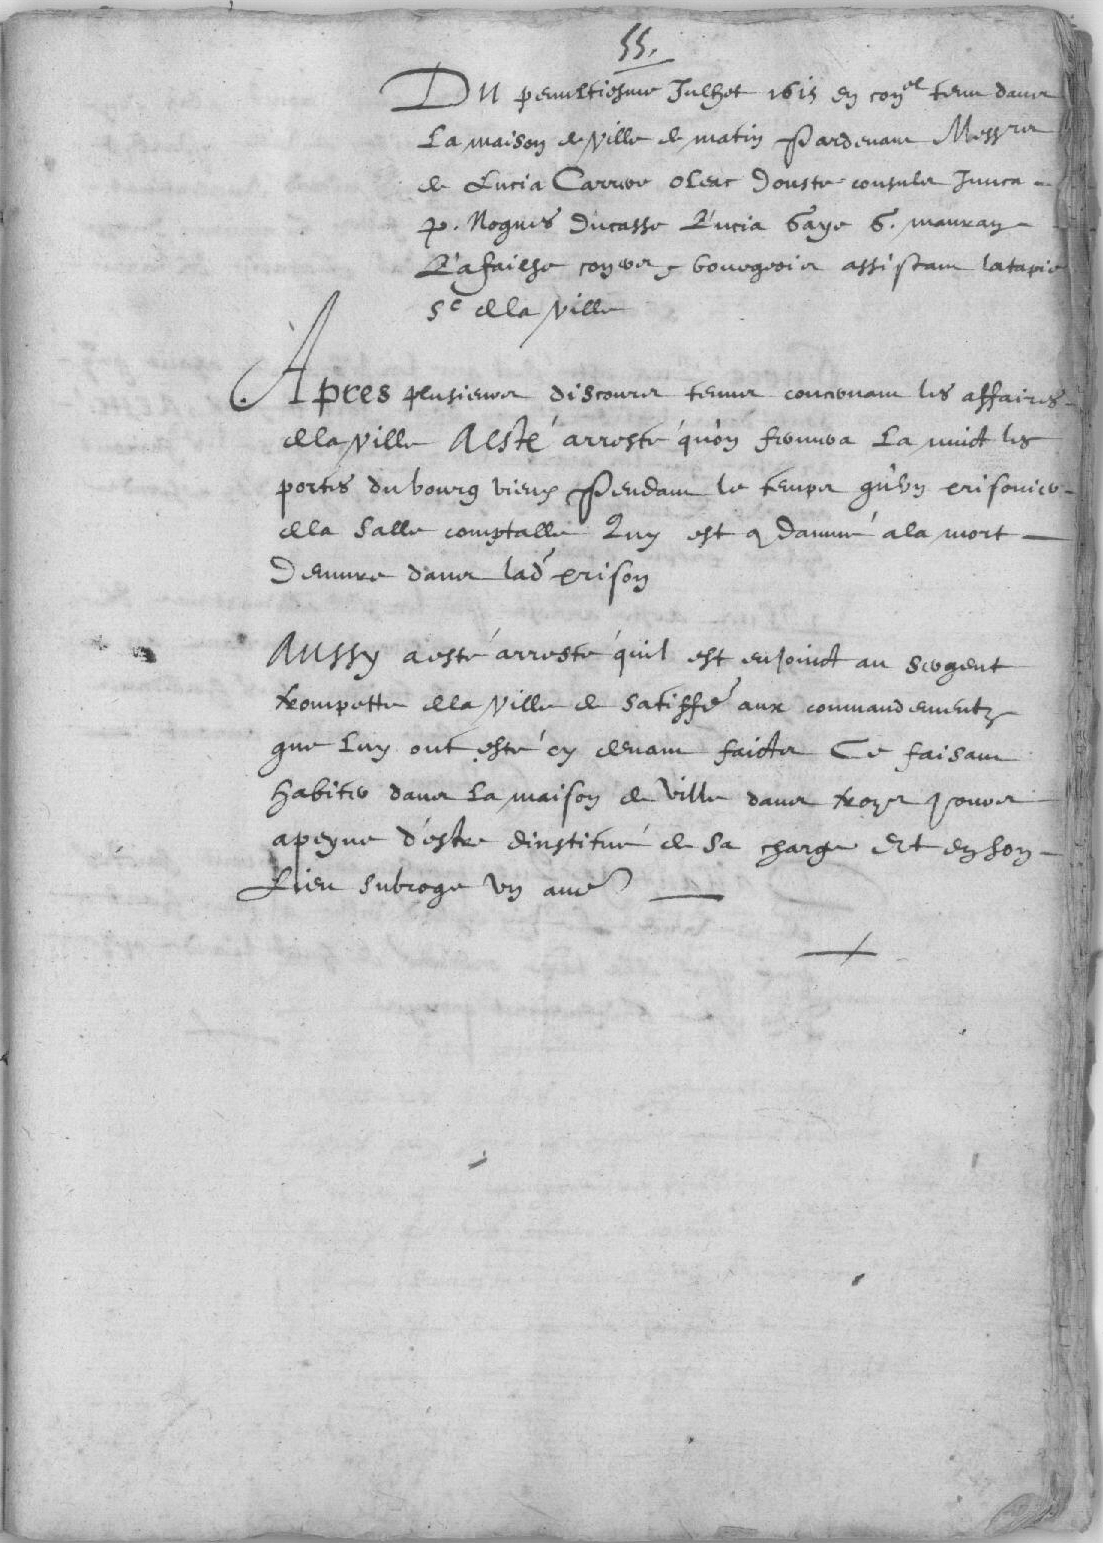 55.
Du penultiesme Julhet 1615 en con.el tenu dans
La maison de Ville de matin Pardevant Messrs
de Lucia Carrere oleac Douste consulz Junca
P. Nogues Ducasse Lucia Gaye G. mauran
Lafaihe con.ers bourgeois assistant latapie
Sc de la Ville
Apres plusieurs discours tenus concernant les affaires
de la Ville Aesté arresté qu'on fermera La nuict les
portes du bourg vieux Pendant le temps qu'un prisonier
de la Salle comptalle Quy est condamné a la mort
Demure dans lad prison
Aussy a esté arresté quil est enjoinct au Sergent
trompette de la Ville de satiffé aux commandementz
que Luy ont esté cy devant faictz Ce faisant
habiter dans La maison de Ville dans trois jours
apeyne d'estre dinstitué de sa charge Et en son
Lieu subroge un autre